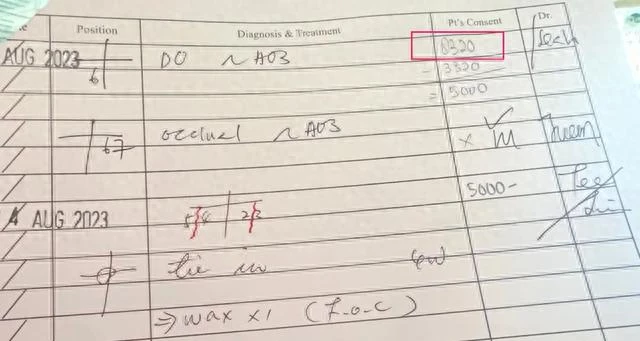 Position Diagnosis & Treatment Pt's Consent Dr.
AUG 2023 6 DO ~ AO3 8320
- 3320
= 5000
67 occlusal ~ AO3 x
5000-
AUG 2023 5 4 2 3
tie in
⇒ wax x1 (F.o.c)